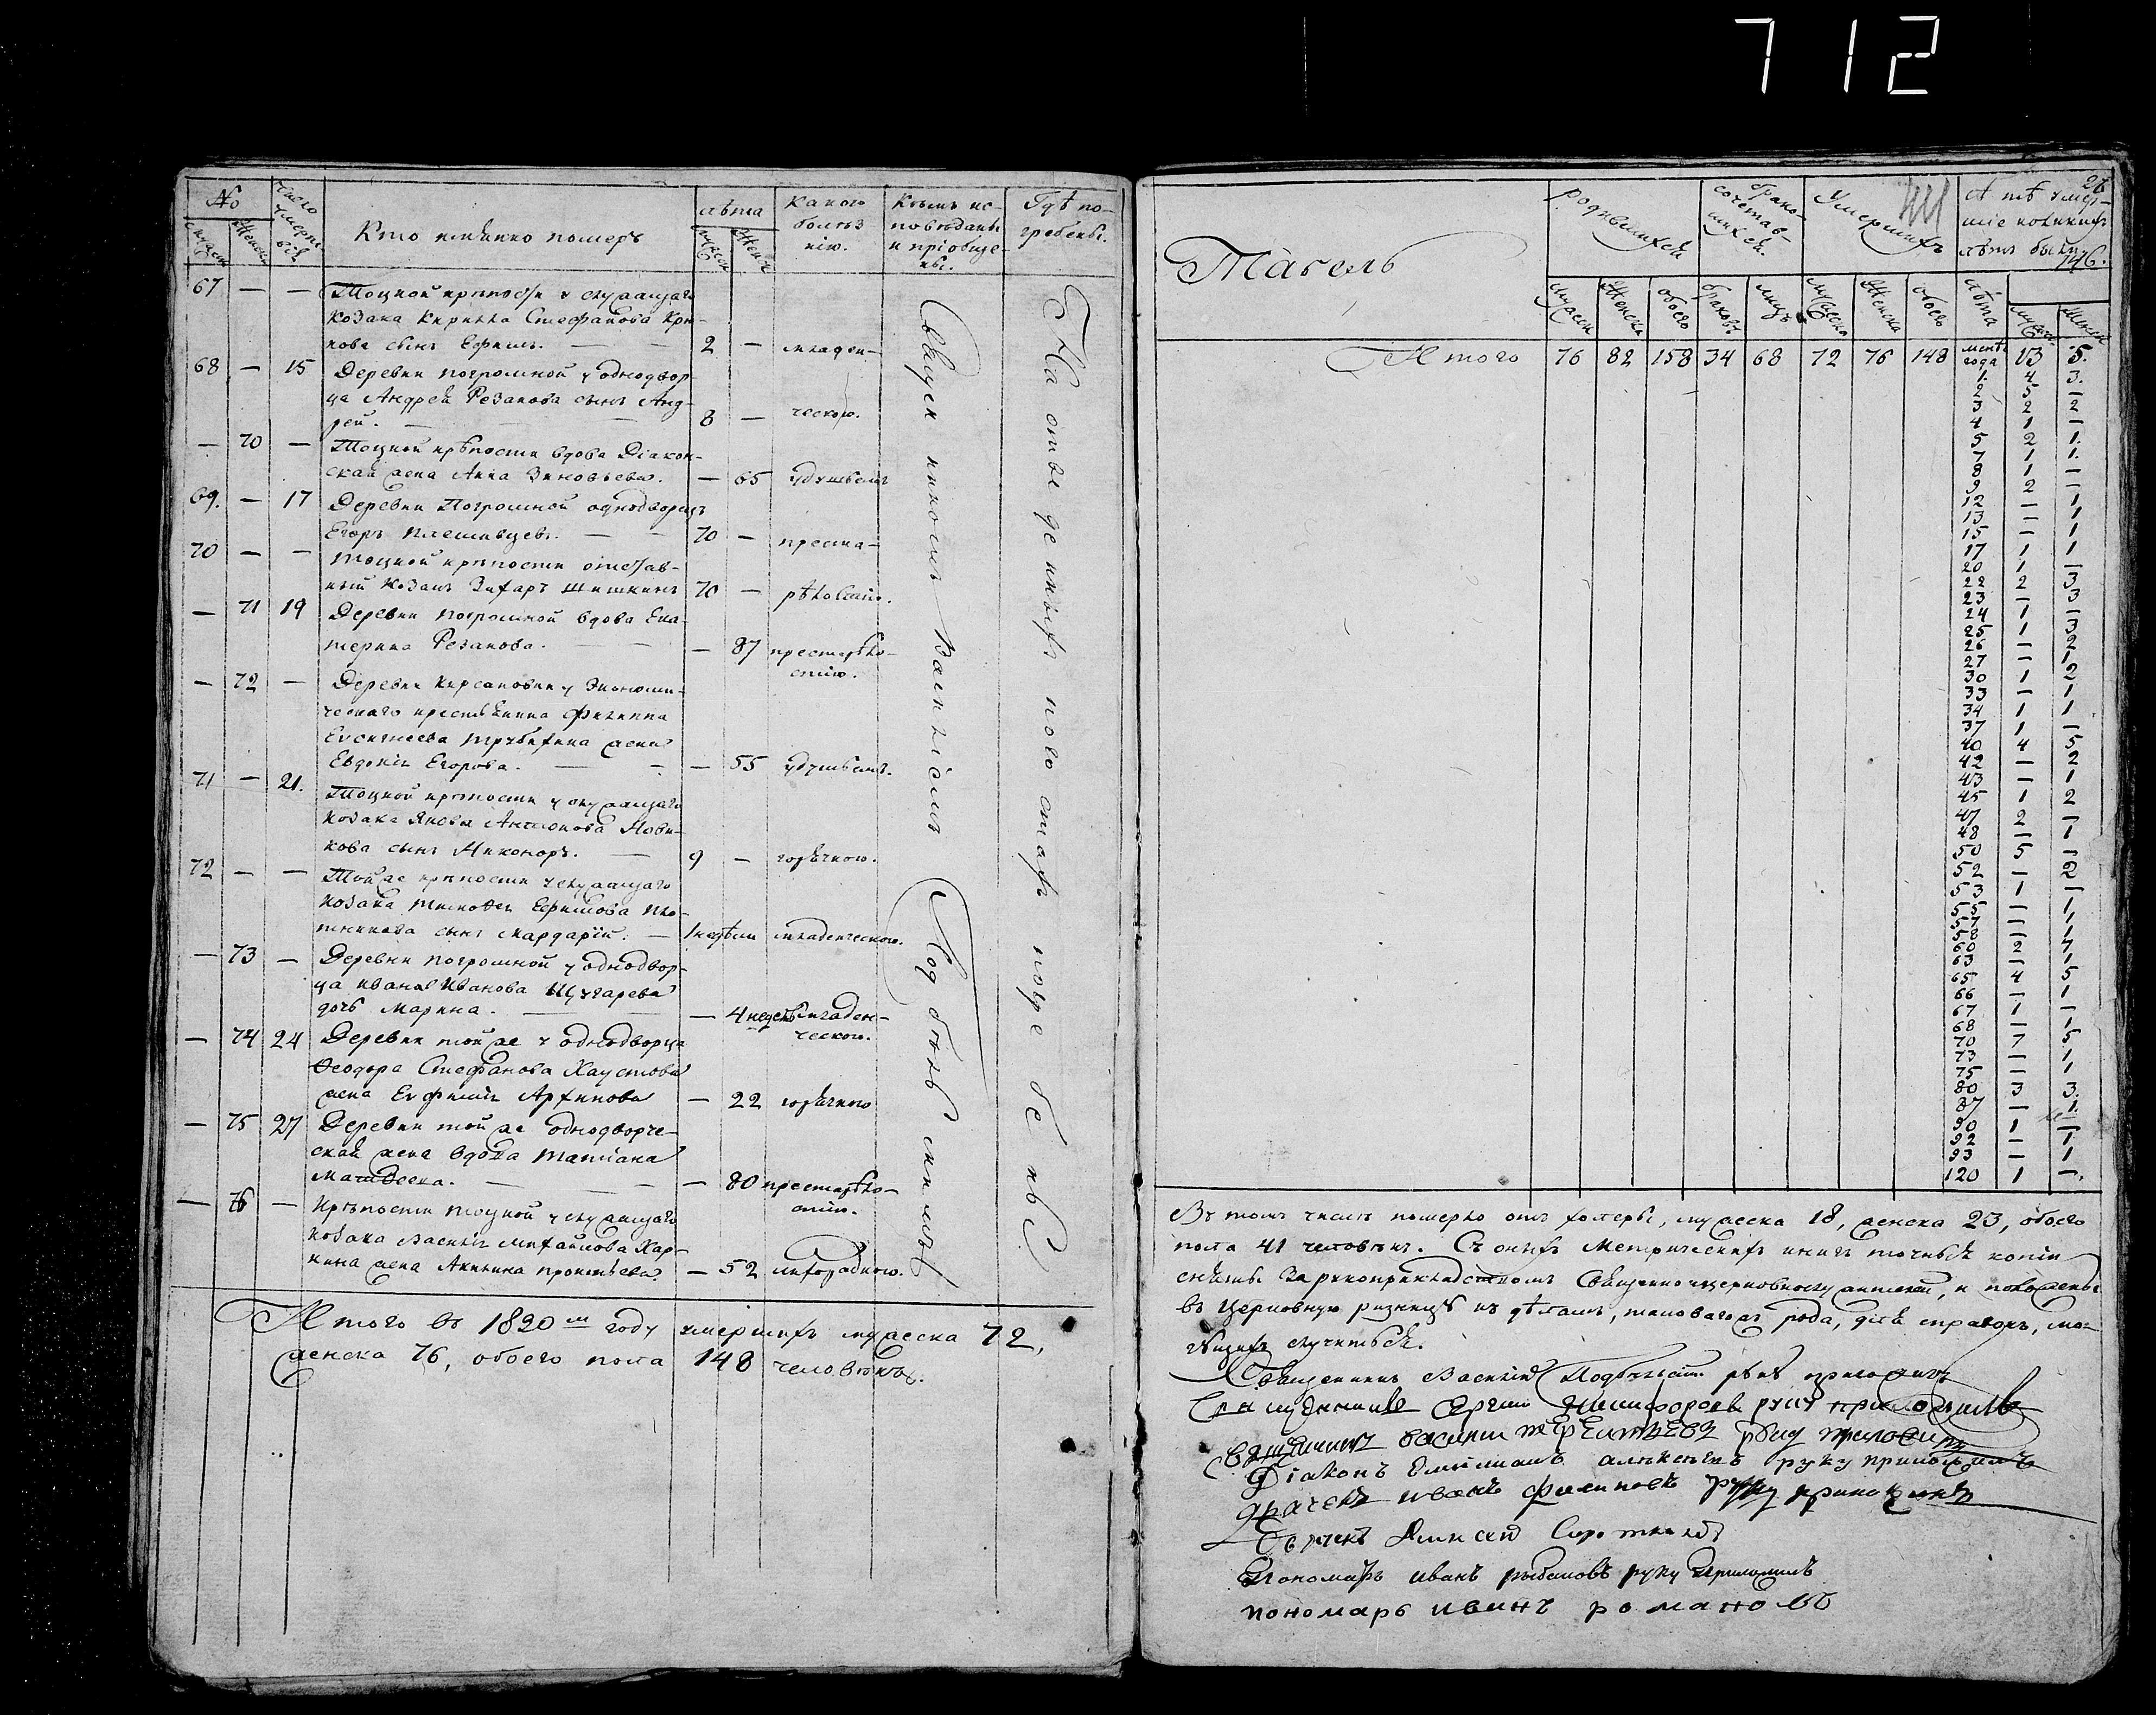 712
№
мужеск
женск
число умертвій
Кто имянно померъ
лѣта
мужеск
женск
какого
болѣз
нію.
Кѣмъ ис-
повѣданы
и пріобще-
ны.
Гдѣ по-
гребены.
67 — — Тоцкой крѣпости у служащаго
козака Кирилла Стефанова Кри-
кова сынъ Ефимъ. — — 2 — младен-
68 — 15 Деревни Погромной у однодвор-
ца Андрея Резанова сынъ Анд-
рей. — — — 8 — ческою.
— 70 — Тоцкой крѣпости вдова Діакон-
ская жена Анна Зиновьева. — 65 удушьемъ
69. — 17 Деревни Погромной однодворецъ
Егоръ Плешивцевъ. — — 70 — преста-
70 — — Тоцкой крѣпости отстав-
ный козакъ Захаръ Шишкинъ 70 — рѣлостію.
— 71 19 Деревни Погромной вдова Ека-
терина Резанова. — — — 87 престарѣло-
стію.
— 72 — Деревни Кирсановки у Экономи-
ческаго крестьянина Филиппа
Евсигнеева Трубихина жена
Евдокія Егорова. — — — 55 удушьемъ.
71 — 21. Тоцкой крѣпости у служащаго
козака Якова Антонова Нови-
кова сынъ Никоноръ. — 9 — горячкою.
72 — — Той же крѣпости у служащаго
козака Тимофея Ефимова Пло-
тникова сынъ Мардарій. — 1 недѣли младенческою.
— 73 — Деревни Погромной у однодвор-
ца Ивана Иванова Щугарева
дочь Марина. — — — 4 недель младен-
ческою.
— 74 24 Деревни той же у однодворца
Ѳеодора Стефанова Хаустова
жена Евфимія Архипова — 22 горячкою
— 75 27 Деревни той же однодворче-
ская жена вдова Татіана
Матвѣева. — — — — 80 престарѣло-
стію.
— 76 — Крѣпости Тоцкой у служащаго
козака Василія Михайлова Хар-
кина жена Акилина Проктѣева. — 52 лихорадкою.
Священникомъ Василіемъ Подбѣльскимъ
На отведенныхъ по востахъ погребены
Итого въ 1830м году умершихъ мужеска 72,
женска 76, обоего пола 148 человѣкъ.
Табель
родившихся
брако-
сочетав-
шихся.
Умершихъ
А тѣ умер-
шіе коликихъ
лѣтъ были.
146.
мужеск
Женска
обоего
браковъ
лицъ
мужеска
Женска
обоего
лѣта
мужеск
женск
Итого 76 82 158 34 68 72 76 148 менѣ года 13 5.
1. 4 3.
2 5 —
3 2 2
4 1 —
5 2 1.
7 1 1.
8 1 —
9 2 —
12 — 1
13 — 1
15 — 1
17 1 1
20 1 —
22 2 3
23 — 3
24 1 —
25 1 3
26 — 2
27 — 1
30 1 2
33 — 1
34 1 1
37 1 —
40 4 5
42 — 2
43 — 1
45 1 2
47 2 —
48 — 1
50 5 —
52 — 2
53 1 —
55 — 1
57 — 1
58 — 1
60 2 7
63 — 1
65 4 5
66 — 1
67 1 —
68 — 1
70 7 5
73 — 1
75 — 1
80 3 3.
87 — 1.
90 1 —
92 — 1
93 — 1
120 1 —.
Въ томъ числѣ померло отъ холеры, мужеска 18, женска 23, обоего
пола 41 человѣкъ. Съ оныхъ Метрическихъ книгъ точныя копіи
сняты за рукоприкладствомъ Священноцерковнослужителей, и положены
въ Церковную ризницу къ дѣламъ, таковагожъ рода, для справокъ, мо-
гущихъ случиться.
Священникъ Василій Подбѣльскій руку приложилъ
Священникъ Сергій Никифоровъ руку приложилъ
Священникъ Василий Терентьевъ руку приложилъ
Діаконъ руку приложилъ
дьячекъ Иванъ Филиповъ руку приложилъ
Дьячекъ Алексей
Пономарь Иванъ Рыбаковъ руку приложилъ
пономарь Иванъ Романовъ